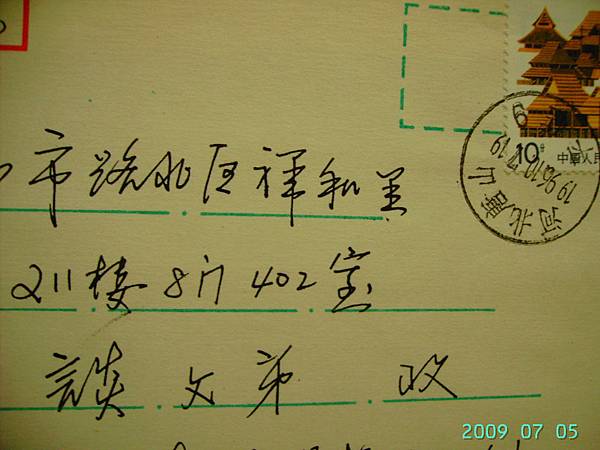 10分
中国人民
河北唐山
1996.10.
19
市路北区祥和里
211楼8门402室
談文弟 收
2009 07 05